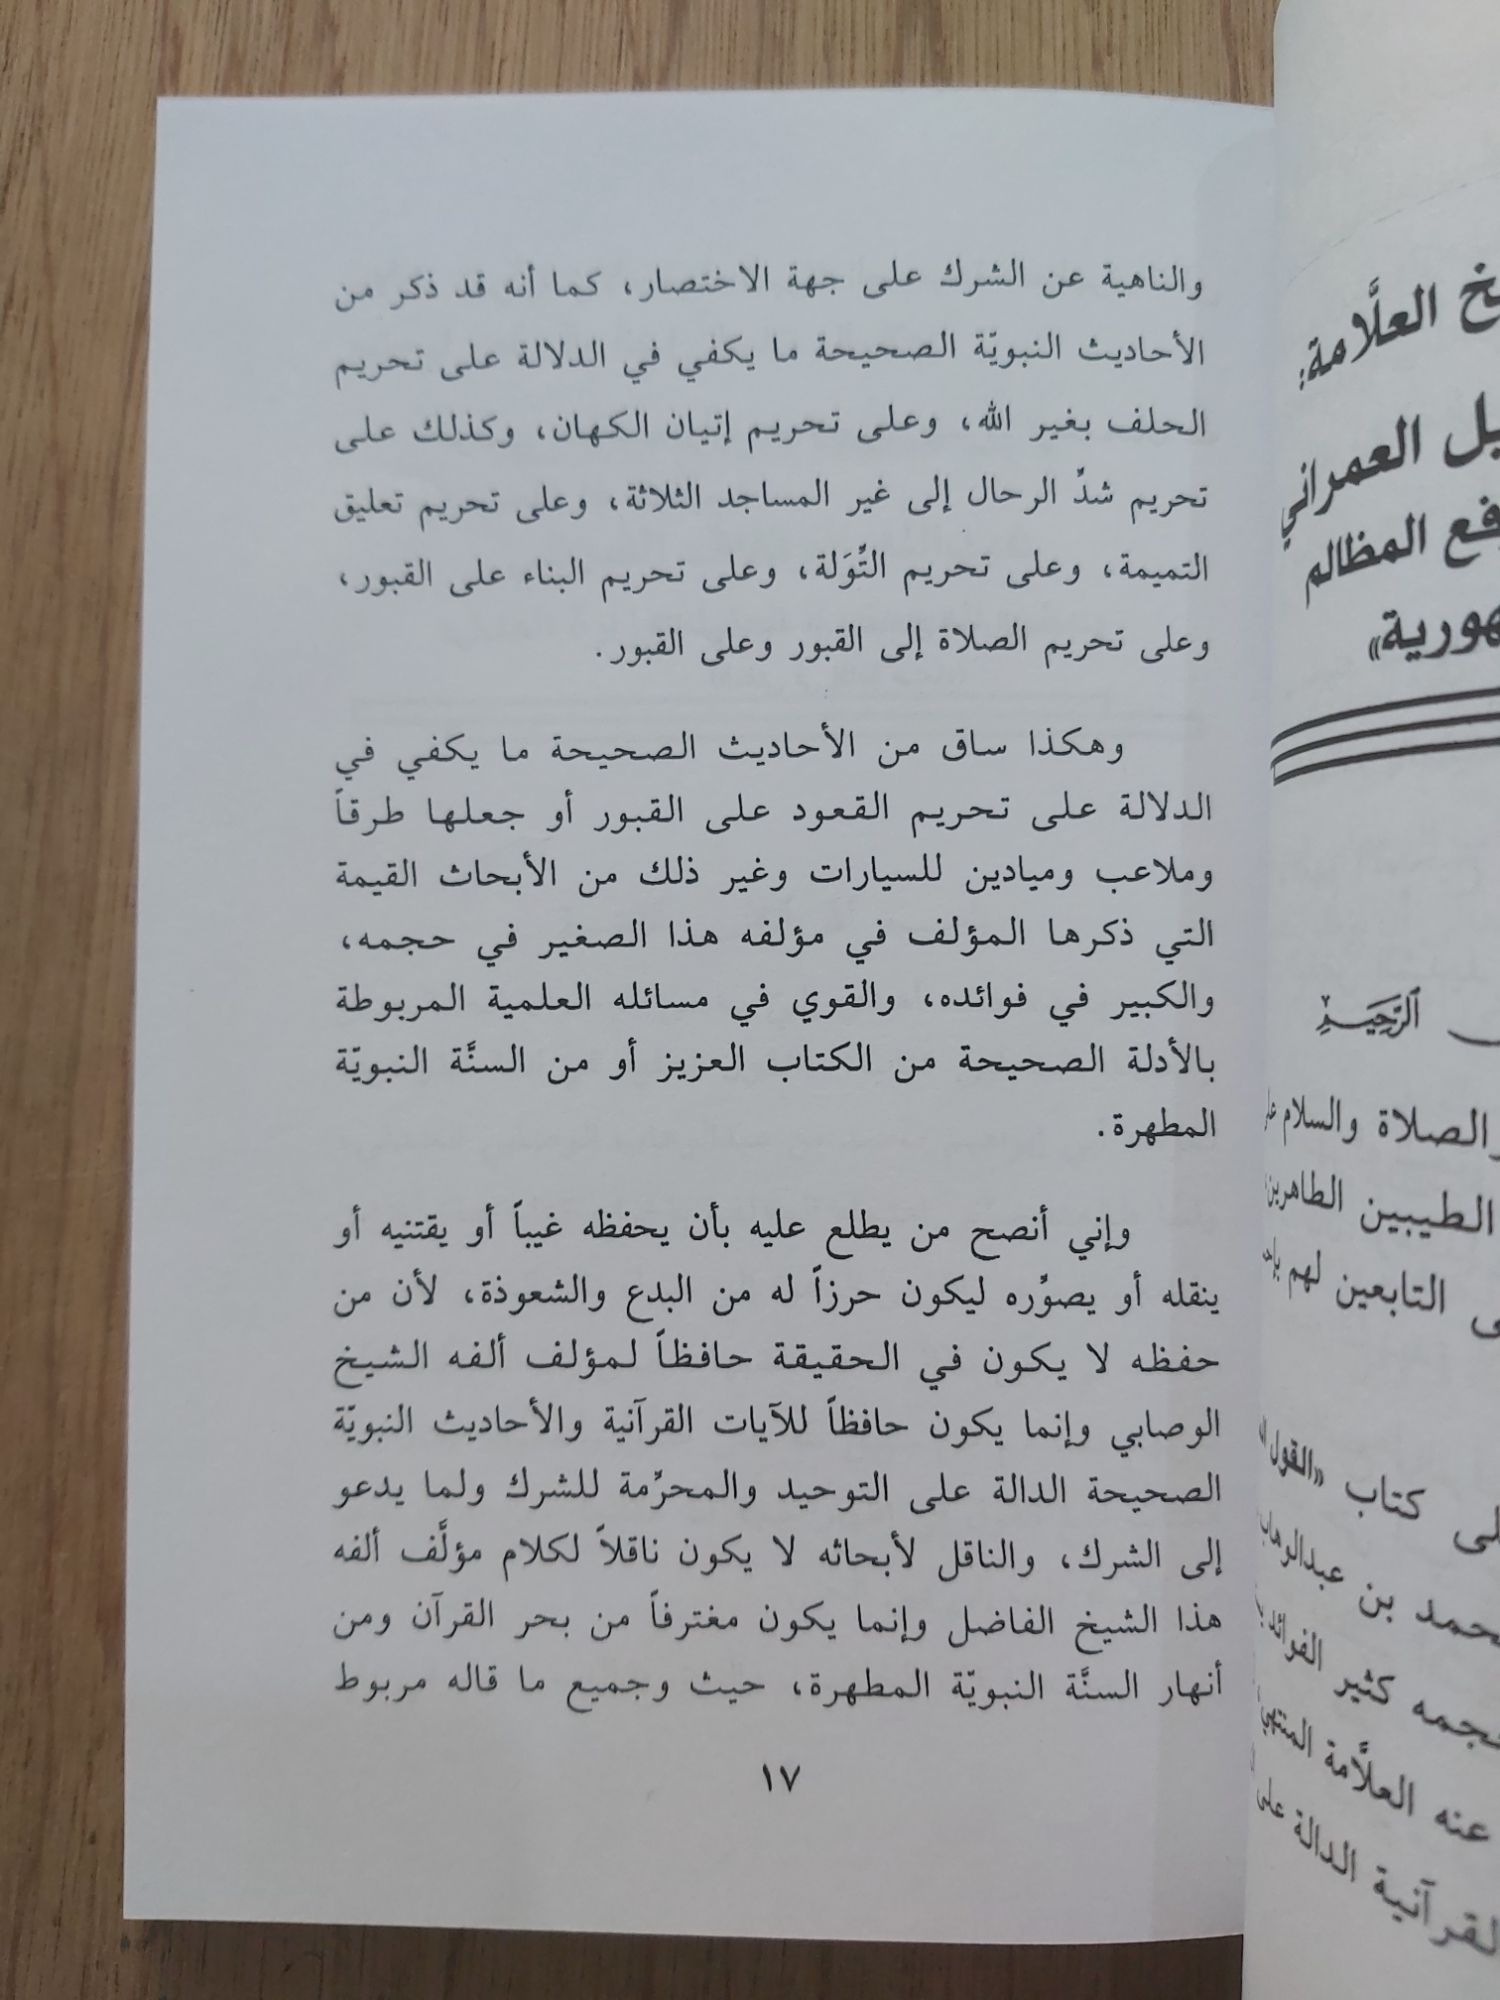 والناهية عن الشرك على جهة الاختصار، كما أنه قد ذكر من
الأحاديث النبويّة الصحيحة ما يكفي في الدلالة على تحريم
الحلف بغير الله، وعلى تحريم إتيان الكهان، وكذلك على
تحريم شدِّ الرحال إلى غير المساجد الثلاثة، وعلى تحريم تعليق
التميمة، وعلى تحريم التِّوَلة، وعلى تحريم البناء على القبور،
وعلى تحريم الصلاة إلى القبور وعلى القبور.
وهكذا ساق من الأحاديث الصحيحة ما يكفي في
الدلالة على تحريم القعود على القبور أو جعلها طرقاً
وملاعب وميادين للسيارات وغير ذلك من الأبحاث القيمة
التي ذكرها المؤلف في مؤلفه هذا الصغير في حجمه،
والكبير في فوائده، والقوي في مسائله العلمية المربوطة
بالأدلة الصحيحة من الكتاب العزيز أو من السنَّة النبويّة
المطهرة.
وإني أنصح من يطلع عليه بأن يحفظه غيباً أو يقتنيه أو
ينقله أو يصوِّره ليكون حرزاً له من البدع والشعوذة، لأن من
حفظه لا يكون في الحقيقة حافظاً لمؤلف ألفه الشيخ
الوصابي وإنما يكون حافظاً للآيات القرآنية والأحاديث النبويّة
الصحيحة الدالة على التوحيد والمحرِّمة للشرك ولما يدعو
إلى الشرك، والناقل لأبحاثه لا يكون ناقلاً لكلام مؤلَّف ألفه
هذا الشيخ الفاضل وإنما يكون مغترفاً من بحر القرآن ومن
أنهار السنَّة النبويّة المطهرة، حيث وجميع ما قاله مربوط
١٧
العلَّامة:
العمراني
المظالم
الرَّحِيمِ
الصلاة والسلام
الطيبين الطاهرين
التابعين لهم
كتاب «القول
بن عبدالوهاب
كثير الفوائد
عنه العلاَّمة المنتهي
الدالة على